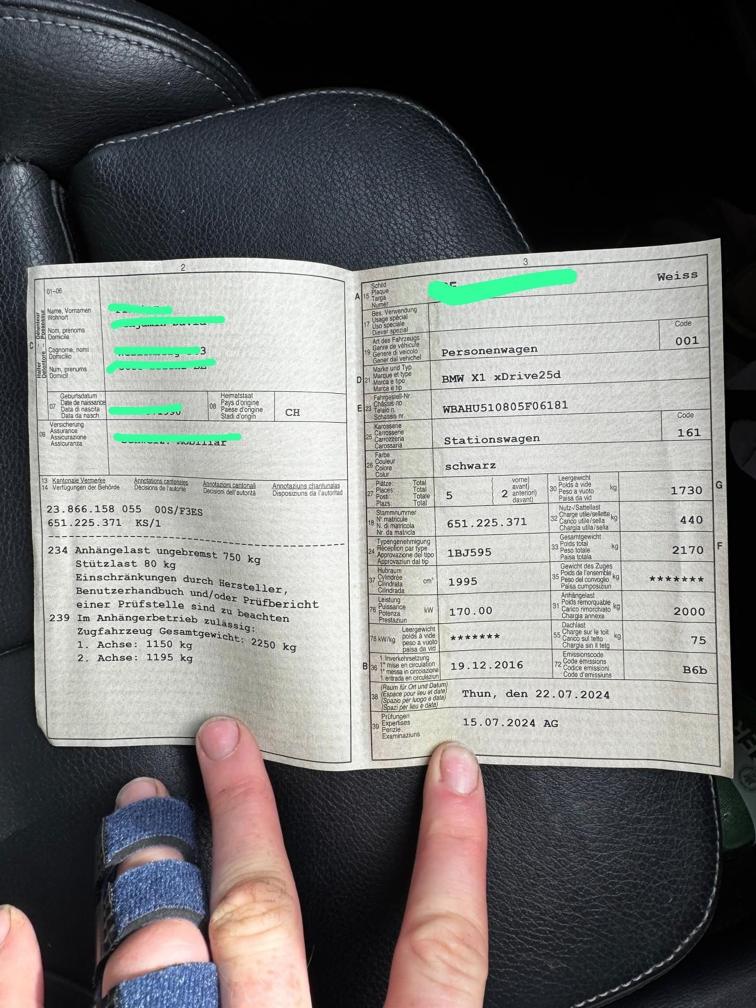 2
01-06
Name, Vornamen
Wohnort
Nom, prénoms
Domicile
Cognome, nomi
Domicilio
Num, prenoms
Domicil
C
3
07
Geburtsdatum
Date de naissance
Data di nascita
Data da nasch.
08
Heimatstaat
Pays d'origine
Paese d'origine
Stadi d'origin
CH
09
Versicherung
Assurance
Assicurazione
Assicuranza
13 Kantonale Vermerke
14 Verfügungen der Behörde
Annotations cantonales
Décisions de l'autorité
Annotazioni cantonali
Decisioni dell'autorità
Annotaziuns chantunalas
Disposiziuns da l'autoritad
23.866.158 055 00S/F3ES
651.225.371 KS/1
234 Anhängelast ungebremst 750 kg
Stützlast 80 kg
Einschränkungen durch Hersteller,
Benutzerhandbuch und/oder Prüfbericht
einer Prüfstelle sind zu beachten
239 Im Anhängerbetrieb zulässig:
Zugfahrzeug Gesamtgewicht: 2250 kg
1. Achse: 1150 kg
2. Achse: 1195 kg
3
A 15
Schild
Plaque
Targa
Numer
Weiss
17
Bes. Verwendung
Usage spécial
Uso speciale
Diever spezial
Code
19
Art des Fahrzeugs
Genre de véhicule
Genere di veicolo
Gener dal vehichel
Personenwagen
001
D 21
Marke und Typ
Marque et type
Marca e tipo
Marca e tip
BMW X1 xDrive25d
E 23
Fahrgestell-Nr.
Châssis no
Telaio n.
Schassis nr.
WBAHU510805F06181
Code
25
Karosserie
Carrosserie
Carrozzeria
Carossaria
Stationswagen
161
26
Farbe
Couleur
Colore
Colur
schwarz
27
Plätze: Total
Places: Total
Posti: Totale
Plazs: Total
5
2
vorne
avant
anteriori
davant
30
Leergewicht
Poids à vide
Peso a vuoto
Paisa da vid
kg
1730
G
18
Stammnummer
N° matricule
N. di matricola
Nr. da matricla
651.225.371
32
Nutz-/Sattellast
Charge utile/sellette
Carico utile/sella
Chargia utila/sella
kg
440
24
Typengenehmigung
Réception par type
Approvazione del tipo
Approvaziun dal tip
1BJ595
33
Gesamtgewicht
Poids total
Peso totale
Paisa totala
kg
2170
F
37
Hubraum
Cylindrée
Cilindrata
Cilindrada
cm³
1995
35
Gewicht des Zuges
Poids de l'ensemble
Peso del convoglio
Paisa cumposiziun
kg
*******
76
Leistung
Puissance
Potenza
Prestaziun
kW
170.00
31
Anhängelast
Poids remorquable
Carico rimorchiato
Chargia annexa
kg
2000
78 kW/kg
Leergewicht
poids à vide
peso a vuoto
paisa da vid
*******
55
Dachlast
Charge sur le toit
Carico sul tetto
Chargia sin il tetg
kg
75
B 36
1. Inverkehrsetzung
1re mise en circulation
1a messa in circolazione
1. entrada en circulaziun
19.12.2016
72
Emissionscode
Code émissions
Codice emissioni
Code d'emissiuns
B6b
38
(Raum für Ort und Datum)
(Espace pour lieu et date)
(Spazio per luogo e data)
(Spazi per lieu e data)
Thun, den 22.07.2024
39
Prüfungen
Expertises
Perizie
Examinaziuns
15.07.2024 AG